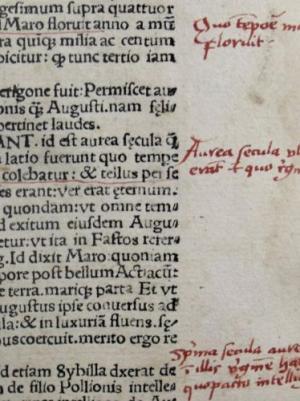 gesimum supra quattuor
Maro floruit anno a mū
ra quiq; milia ac centum
oicitur: q tunc tertio iam
erigone fuit: Permiscet au
onis q̄ Augusti. nam feli
pertinet laudes.
ANT. id est aurea secula q̄
latio fuerunt quo tempe
colebatur: & tellus per se
es erant: ver erat eternum.
quondam: vt omne tem
d exitum eiusdem Augu
etur: vt ita in Fastos refere
g. Id dixit Maro: quoniam
pore post bellum Actiacū:
e terra. mariq; parta Et vt
ugustus ipse conuersus ad
la: & in luxuriā fluens. se
us coercuit. merito ergo re
d etiam Sybilla dxerat de
n de filio Pollionis intelle
Quo tempoē m
floruit
Aurea secula
erāt quo
Prima secula aure
illis
quopacto intelli